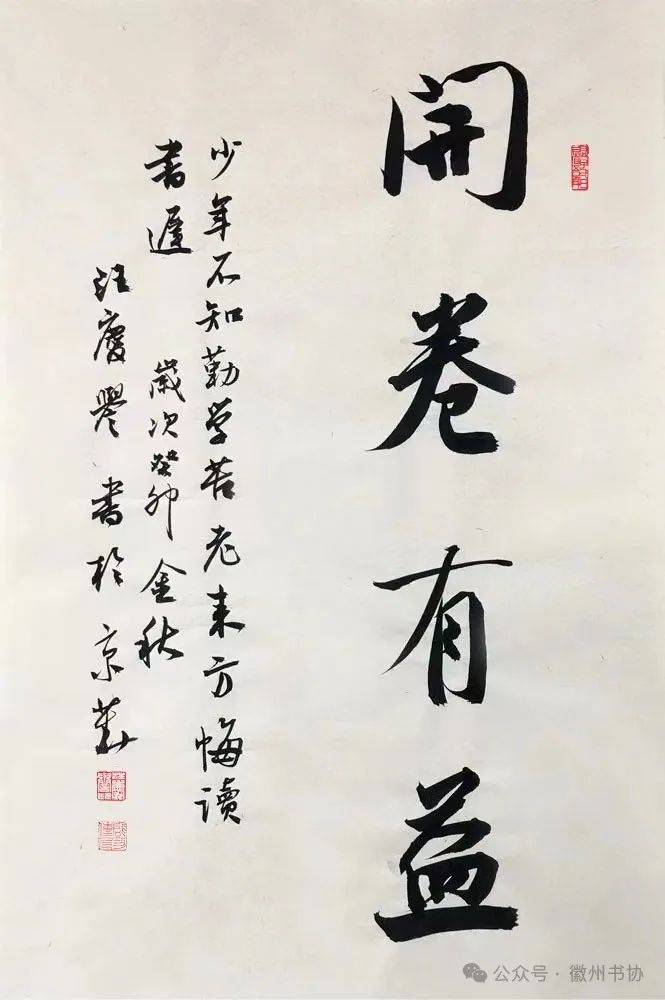 開卷有益
少年不知勤学苦老来方悔读
書遲 歲次癸卯金秋
汪慶譽書於京華
公众号·徽州书协